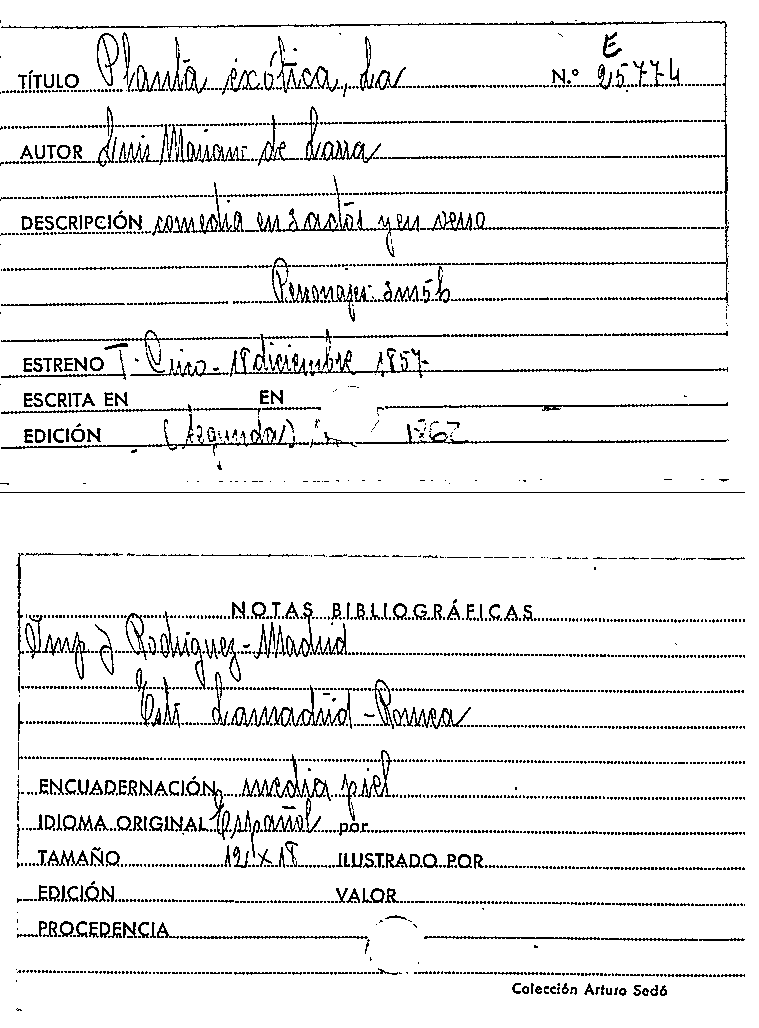 E
TÍTULO Planta exótica, La N.º 25.774
AUTOR Luis Mariano de Larra
DESCRIPCIÓN comedia en 3 actos y en verso
Personajes: 3m5h
ESTRENO T. Circo - 18 diciembre 1857-
ESCRITA EN EN
EDICIÓN (Segunda)
NOTAS BIBLIOGRÁFICAS
Imp J Rodriguez - Madrid
Estr Lamadrid - Romea
ENCUADERNACIÓN media piel
IDIOMA ORIGINAL Español por
TAMAÑO 12 x 18 ILUSTRADO POR
EDICIÓN VALOR
PROCEDENCIA
Colección Arturo Sedó